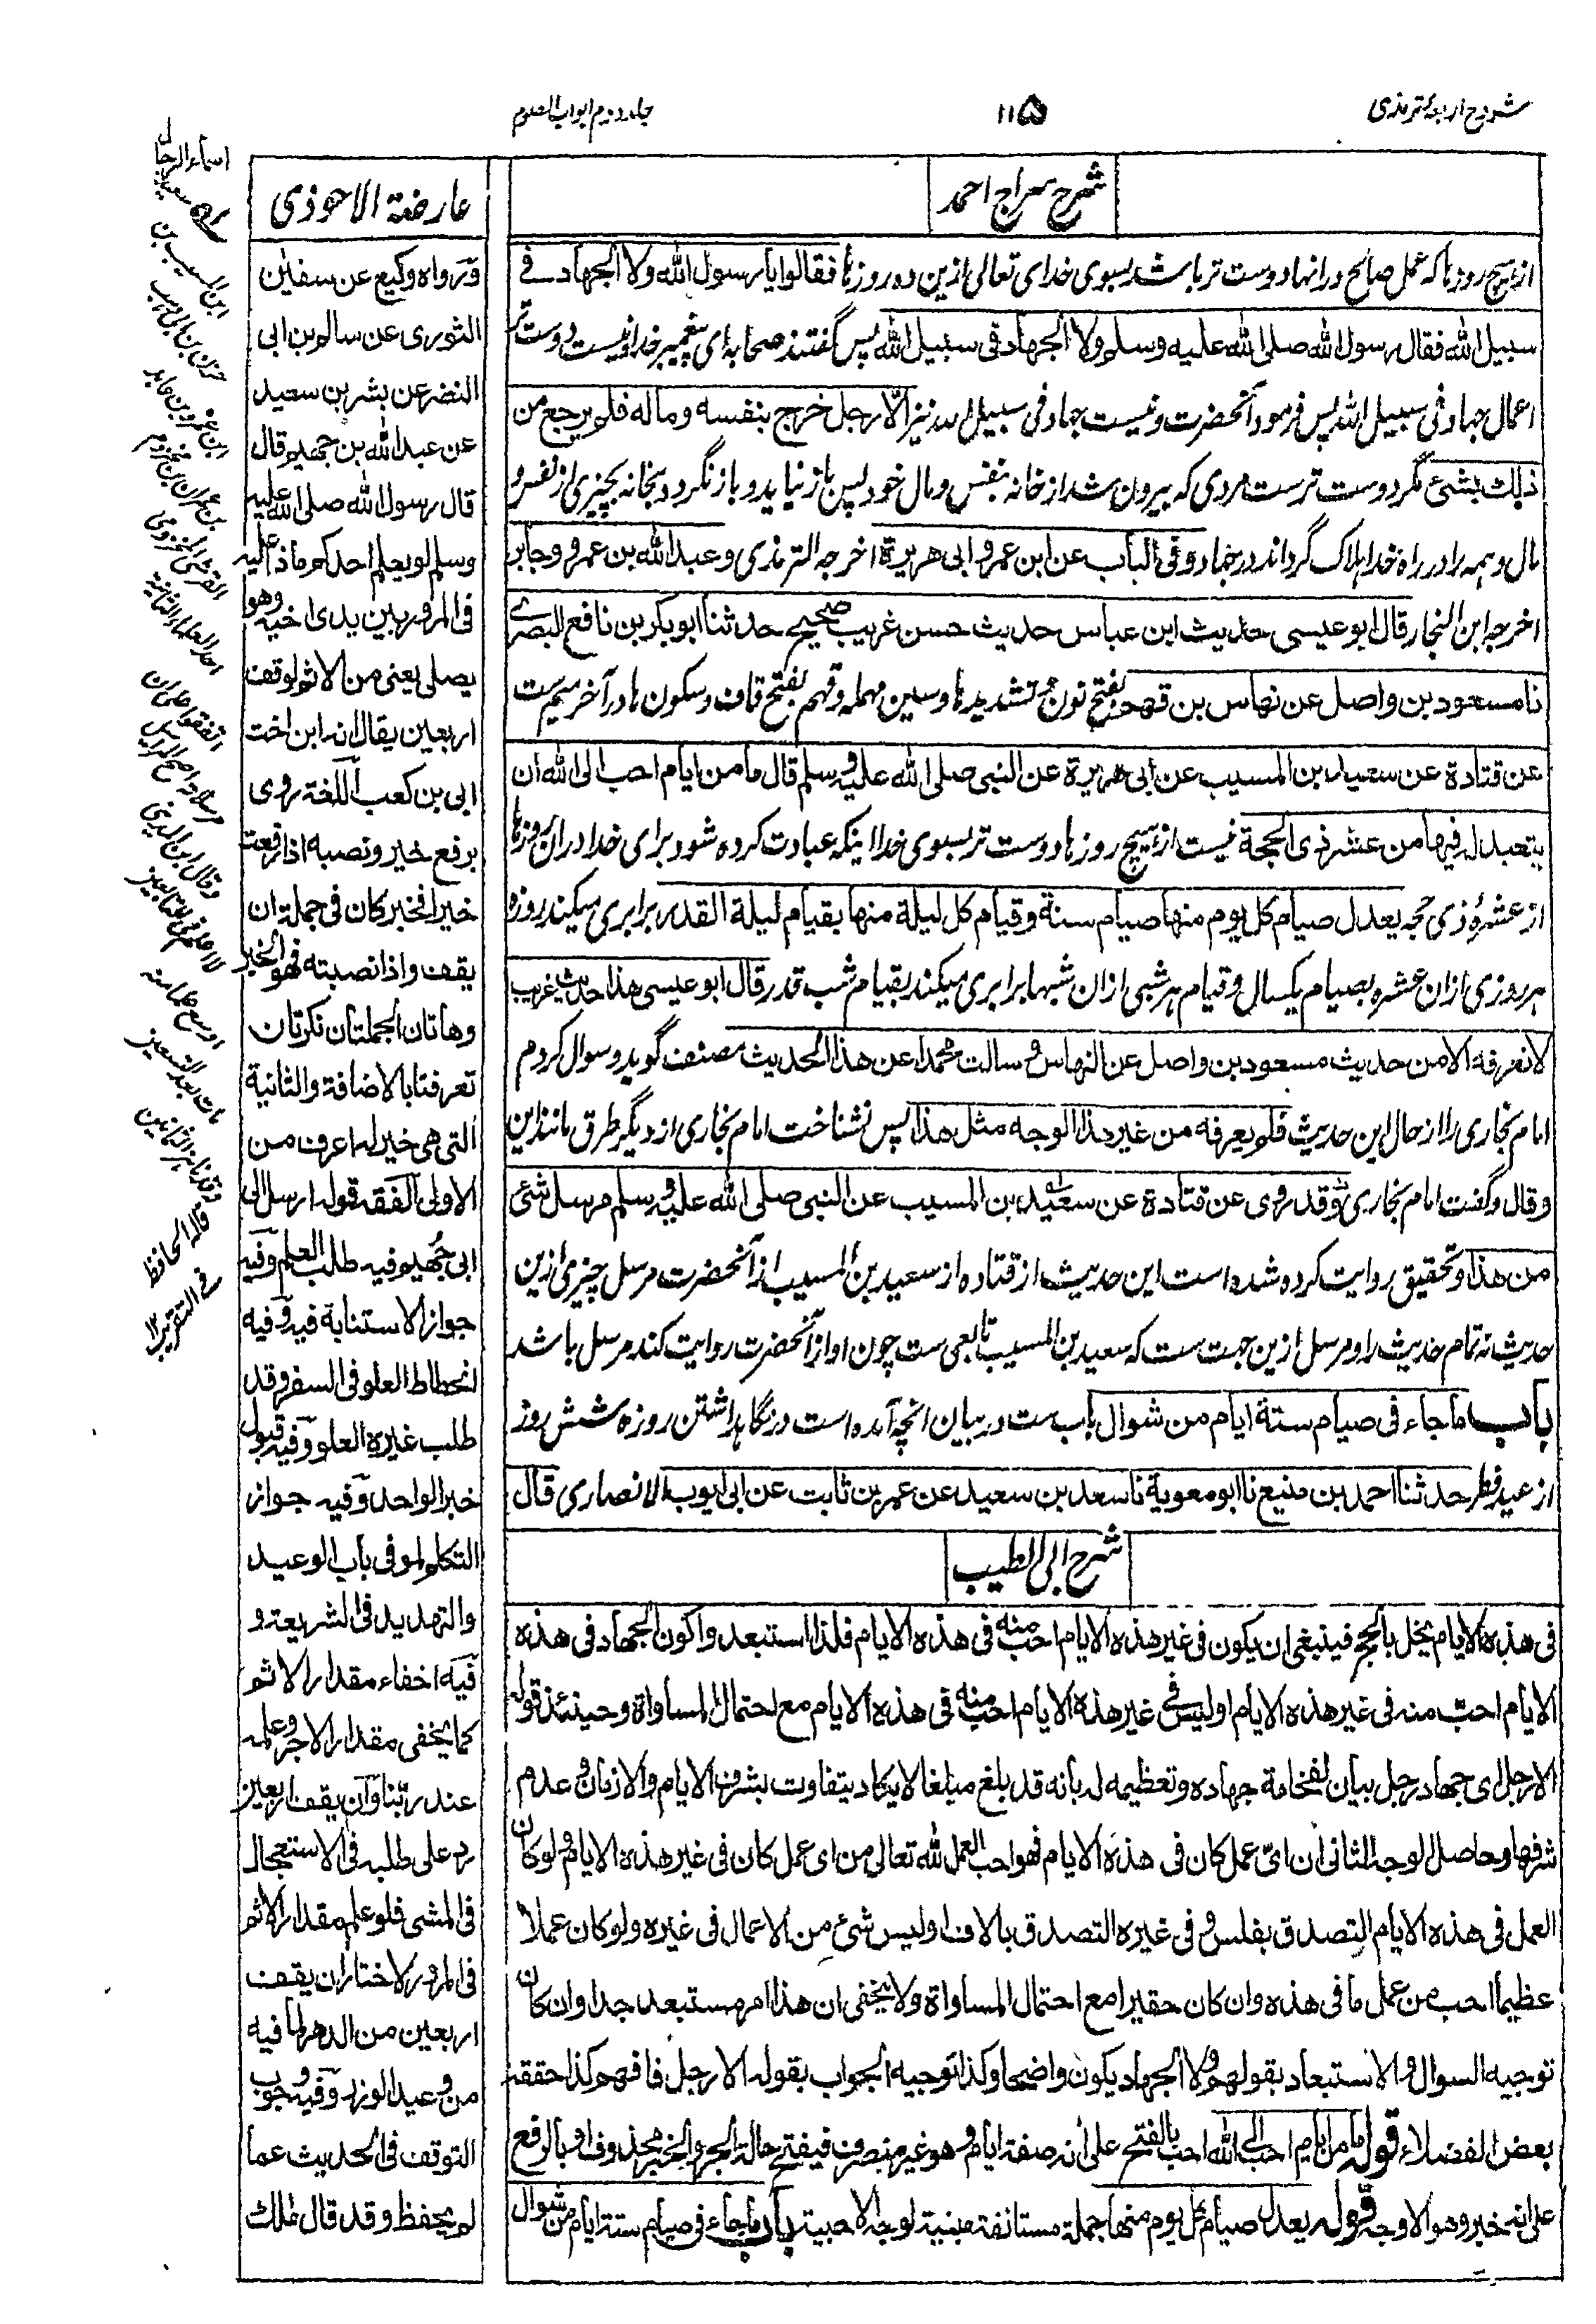 شروح اربعهٔ ترمذی
۱۱۵
جلد دوم ابواب الصوم
شرح سراج احمد
از هیچ روزها که عمل صالح در انها دوست تر باشد بسوی خدای تعالی ازین ده روزها فقالوا یا رسول الله ولا الجهاد فے
سبیل الله فقال رسول الله صلی الله علیه وسلم ولا الجهاد فی سبیل الله پس گفتند صحابه ای پیغمبر خدا و نیست دوست تر
اعمال جهاد فی سبیل الله پس فرمود آنحضرت و نیست جهاد فی سبیل الله نیز الا رجل خرج بنفسه وماله فلم یرجع من
ذلك بشئ مگر دوست ترست مردی که بیرون شد از خانه بنفس و مال خود پس باز نیاید و باز نگردد بخانه بچیزی از نفس و
مال و همه را در راه خدا هلاک گرداند در جهاد وفی الباب عن ابن عمر وابی هریرة اخرجه الترمذی وعبد الله بن عمرو وجابر
اخرجه ابن النجار قال ابو عیسی حدیث ابن عباس حدیث حسن غریب صحیح حدثنا ابو بکر بن نافع البصرے
نا مسعود بن واصل عن نهاس بن قهم بفتح نون و تشدید ها و سین مهمله و قهم بفتح قاف و سکون ها در آخر میم ست
عن قتادة عن سعید بن المسیب عن ابی هریرة عن النبی صلی الله علیه وسلم قال ما من ایام احب الی الله ان
یتعبد له فیها من عشر ذی الحجة نیست از هیچ روزها دوست تر بسوی خدا اینکه عبادت کرده شود برای خدا در ان روزها
از عشرهٔ ذی حجه یعدل صیام کل یوم منها صیام سنة وقیام کل لیلة منها بقیام لیلة القدر برابری میکند روزه
هر روزی از ان عشره بصیام یکسال و قیام هر شبی از ان شبها برابری میکند بقیام شب قدر قال ابو عیسی هذا حدیث غریب
لا نعرفه الا من حدیث مسعود بن واصل عن النهاس وسالت محمدا عن هذا الحدیث مصنف گوید و سوال کردم
امام بخاری را از حال این حدیث فلم یعرفه من غیر هذا الوجه مثل هذا پس نشناخت امام بخاری از دیگر طرق مانند این
وقال و گفت امام بخاری وقد روی عن قتادة عن سعید بن المسیب عن النبی صلی الله علیه وسلم مرسل شئ
من هذا و تحقیق روایت کرده شده است این حدیث از قتاده از سعید بن المسیب از آنحضرت مرسل چیزی ازین
حدیث نه تمام حدیث را و مرسل ازین جهت ست که سعید بن المسیب تابعی ست چون او از آنحضرت روایت کند مرسل باشد
باب ما جاء فی صیام ستة ایام من شوال باب ست در بیان انچه آمده است در نگاهداشتن روزه شش روز
از عید فطر حدثنا احمد بن منیع نا ابو معویة نا سعد بن سعید عن عمر بن ثابت عن ابی ایوب الانصاری قال
شرح ابی الطیب
فی هذه الایام یخل بالحج فینبغی ان یکون فی غیر هذه الایام احب منه فی هذه الایام فلذا استبعدوا کون الجهاد فی هذه
الایام احب منه فی غیر هذه الایام او لیس فی غیر هذه الایام احب منه فی هذه الایام مع احتمال المساواة وحینئذ قوله
الا رجل ای جهاد رجل بیان لفخامة جهاده وتعظیمه له بانه قد بلغ مبلغا لا یکاد یتفاوت بشرف الایام والازمان وعدم
شرفها وحاصل الوجه الثانی ان ای عمل کان فی هذه الایام فهو احب العمل لله تعالی من ای عمل کان فی غیر هذه الایام ولو کان
العمل فی هذه الایام التصدق بفلس وفی غیره التصدق بالاف او لیس شئ من الاعمال فی غیره ولو کان عملا
عظیما احب من عمل ما فی هذه وان کان حقیرا مع احتمال المساواة ولا یخفی ان هذا امر مستبعد جدا وان کان
توجیه السوال والاستبعاد بقولهم ولا الجهاد یکون واضحا وکذا توجیه الجواب بقوله الا رجل فافهم کذا حققه
بعض الفضلاء قوله ما من ایام احب الی الله احب بالفتح علی انه صفة ایام وهو غیر منصرف فیفتح حالة الجر والخبر محذوف او بالرفع
علی انه خبر وهو الاوجه قوله یعدل صیام کل یوم منها جملة مستانفة مبینة لوجه الاحبیة باب ما جاء فی صیام ستة ایام من شوال
عارضة الاحوذی
ورواه وکیع عن سفین
الثوری عن سالم بن ابی
النضر عن بشر بن سعید
عن عبد الله بن جهیم قال
قال رسول الله صلی الله علیه
وسلم لو یعلم احدکم ماذا علیه
فی المرور بین یدی اخیه وهو
یصلی یعنی من الاثم لوقف
اربعین یقال انه ابن اخت
ابی بن کعب اللغة روی
برفع خیر ونصبه اذا رفعت
خیرا فخبر کان فی جملة ان
یقف واذا نصبته فهو الخبر
وهاتان الجملتان نکرتان
تعرفتا بالاضافة والثانیة
التی هی خیر له اعرف من
الاولی الفقه قوله ارسل الی
ابی جهیم فیه طلب العلم وفیه
جواز الاستنابة فیه وفیه
انحطاط العلو فی السفر وقد
طلب غیره العلو وفیه قبول
خبر الواحد وفیه جواز
التکلم لو فی باب الوعید
والتهدید فی الشریعة و
فیه اخفاء مقدار الاثم
کما یخفی مقدار الاجر وعلمه
عند ربنا وان یقف اربعین
رد علی طلبه فی الاستعجال
فی المشی فلو علم مقدار الاثم
فی المرور لاختار ان یقف
اربعین من الدهر لما فیه
من وعید الوزر وفیه وجوب
التوقف فی الحدیث عما
لم یحفظ وقد قال ملك
اسماء الرجال
سعید
ابن المسیب بن
حزن بن ابی وهب
ابن عمرو بن عابد
بن عمران بن مخزوم
القرشی المخزومی
احد العلماء
اتفقوا علی ان
مرسلاته اصح المراسیل
وقال ابن المدینی
لا اعلم فی التابعین
اوسع علما منه
مات بعد التسعین
وقد ناهز الثمانین
قاله الحافظ
فی التقریب ۱۲